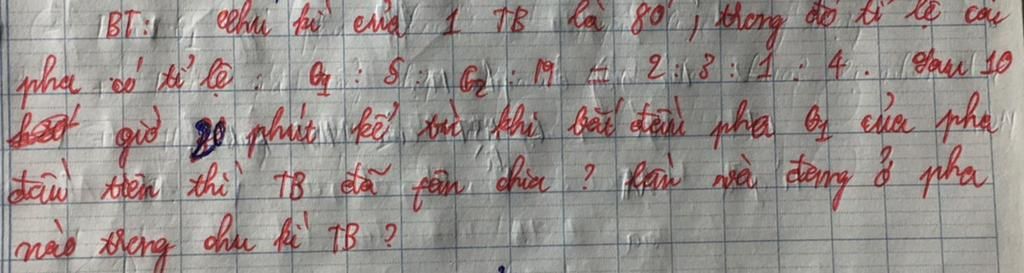 BT: Chu kì của 1 TB là 80', trong đó tỉ lệ các
pha có tỉ lệ : G1 : S : G2 : M = 2 : 3 : 1 : 4. Sau 10
giờ 20 phút kể từ khi bắt đầu pha G1 của pha
đầu tiên thì TB đã fân chia ? lần và đang ở pha
nào trong chu kì TB ?